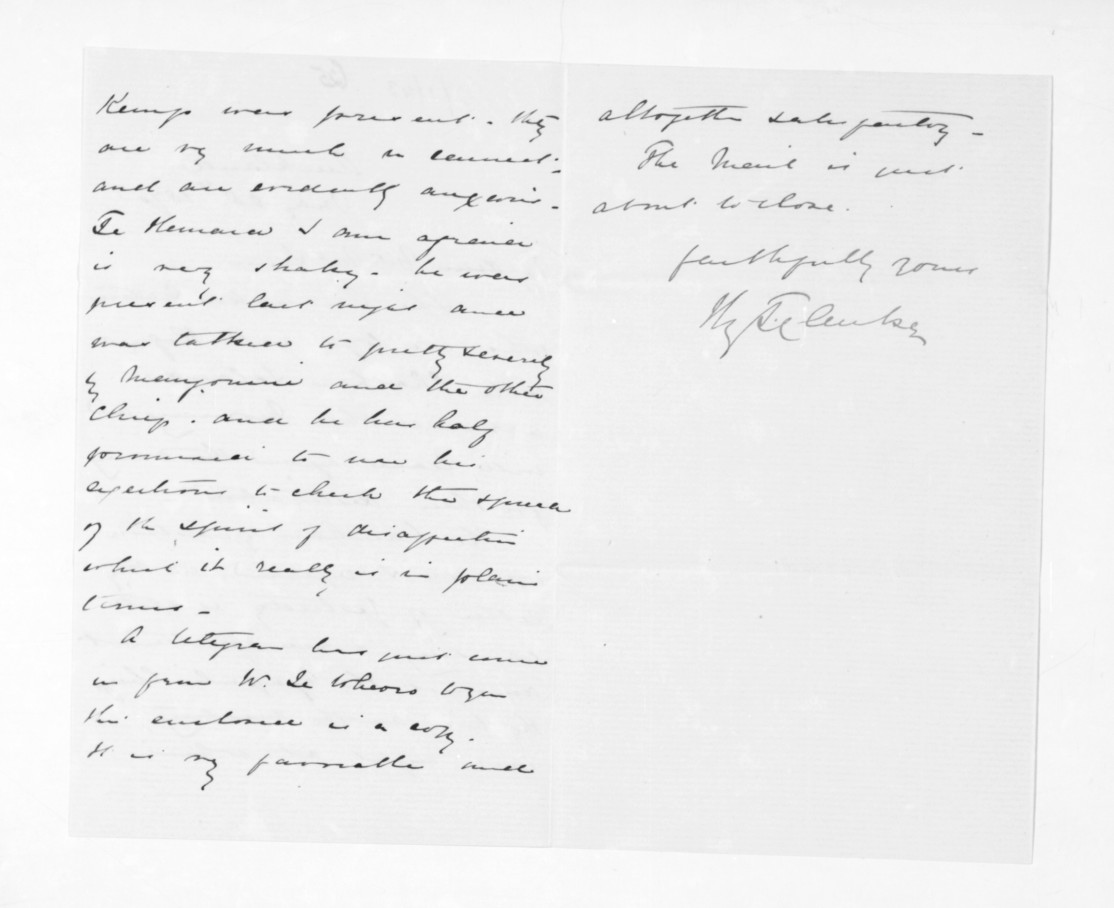 Kemp were present - they
are vy much in earnest -
and are evidently anxious -
Te Hemara I am afraid
is very shaky - he was
present last night and
was talked to pretty severely
by and the other
Chiefs. and he has half
promised to use his
exertions to check the spread
of the spirit of disaffection
which it really is in plain
terms -
A telegram has just come
in from W. Te Wheoro
the enclosed is a copy.
It is vy favorable and
altogether satisfactory -
The Mail is just
about to close.
faithfully yours
Hy T. Clarke